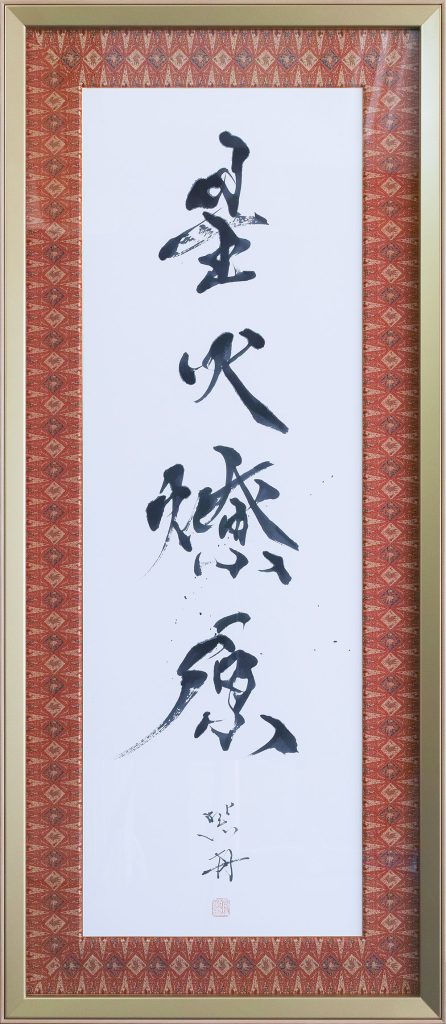 星火燎原